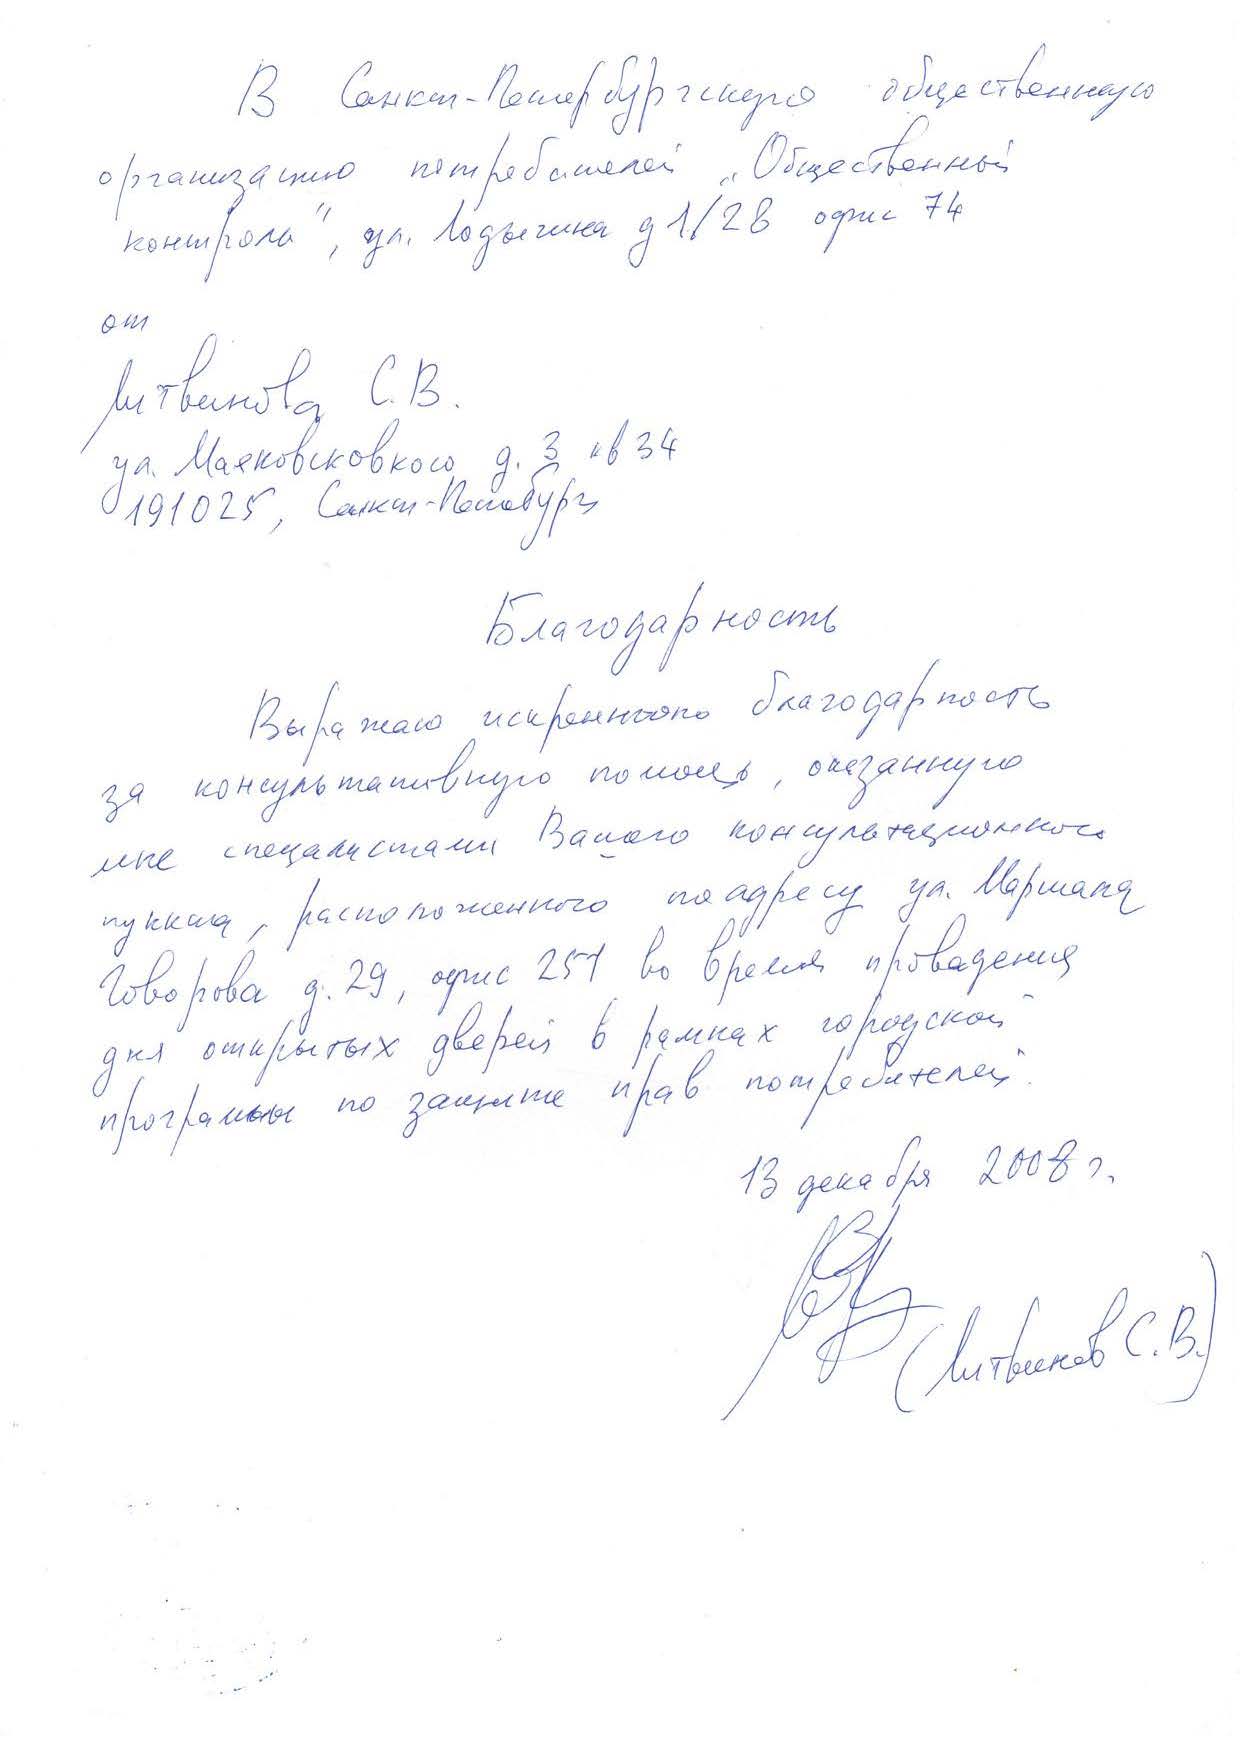 В Санкт-Петербургскую общественную
организацию потребителей „Общественный
контроль", ул. Лодыгина д 1/28 офис 74
от
Литвинова С.В.
ул. Маяковсковкого д. 3 кв 34
191025, Санкт-Петебург
Благодарность
Выражаю искреннюю благодарность
за консультативную помощь, оказанную
мне специалистами Вашего консультационного
пункта, расположенного по адресу ул. Маршала
Говорова д. 29, офис 251 во время проведения
дня открытых дверей в рамках городской
программы по защите прав потребителей.
13 декабря 2008 г.
(Литвинов С.В.)